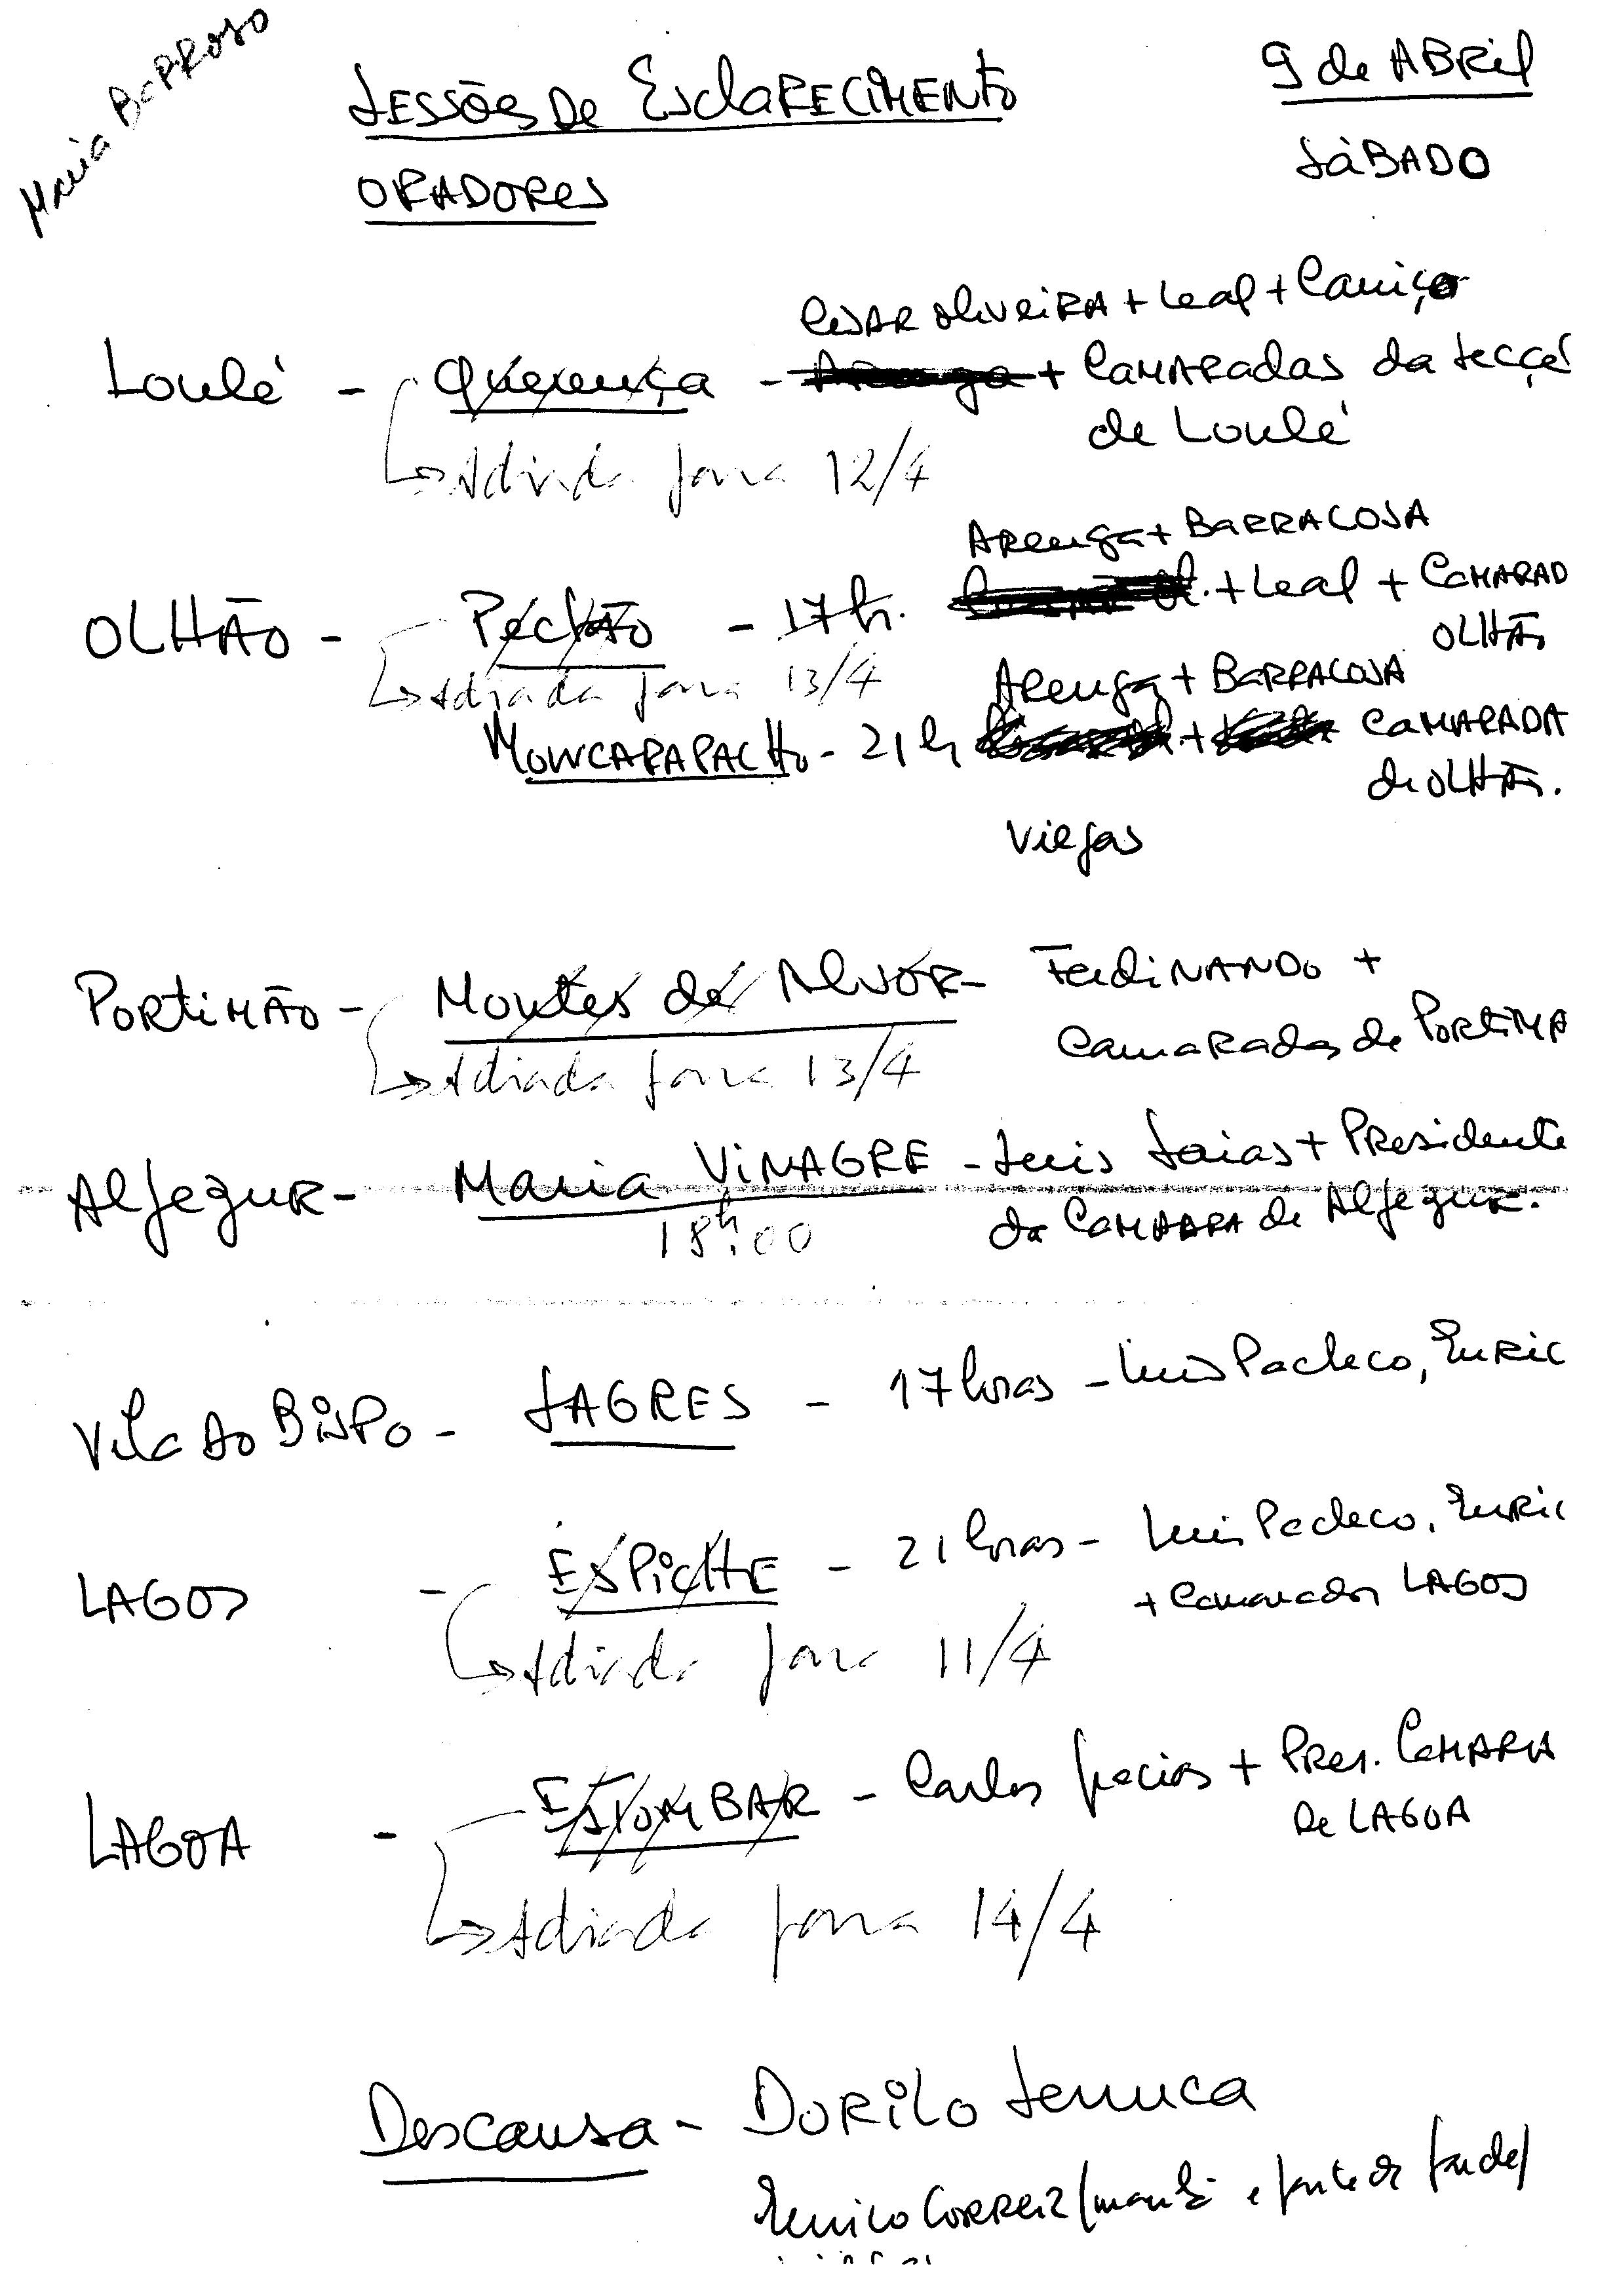 Maria Barroso
SESSÕES DE ESCLARECIMENTO
9 de ABRIL
SÁBADO
ORADORES
CESAR OLIVEIRA + Leal + Caniço
Loulé - Querença - + CAMARadas da Secçã
de Loulé
Adiada para 12/4
Arenga + BARRACOSA
OLHÃO - Pechão - 17h. + Leal + CAMARAD
OLHÃO
Adiada para 13/4
Arenga + BARRACOSA
MONCARAPACHO - 21h + CAMARADA
de OLHÃO.
Viegas
PORTIMÃO - Montes de ALVOR - FerdiNANDO +
Camaradas de PORTIMÃ
Adiada para 13/4
Aljezur - Maria VINAGRE - Luis Saias + Presidente
18h:00
da CAMARA de Aljezur.
Vila do BISPO - SAGRES - 17 horas - Luis Pacheco, Euric
LAGOS - ESPICHE - 21 horas - Luis Pacheco, Euric
+ Camaradas LAGOS
Adiada para 11/4
LAGOA - ESTOMBAR - Carlos Gracias + Pres. CAMARA
De LAGOA
Adiada para 14/4
Descansa - DORILO Seruca
Eurico CORREIA (manhã e parte da tarde)